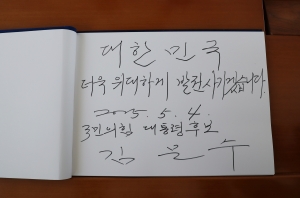 대한민국
더욱 위대하게 발전시키겠습니다.
2025. 5. 4.
국민의힘 대통령후보
김 문 수